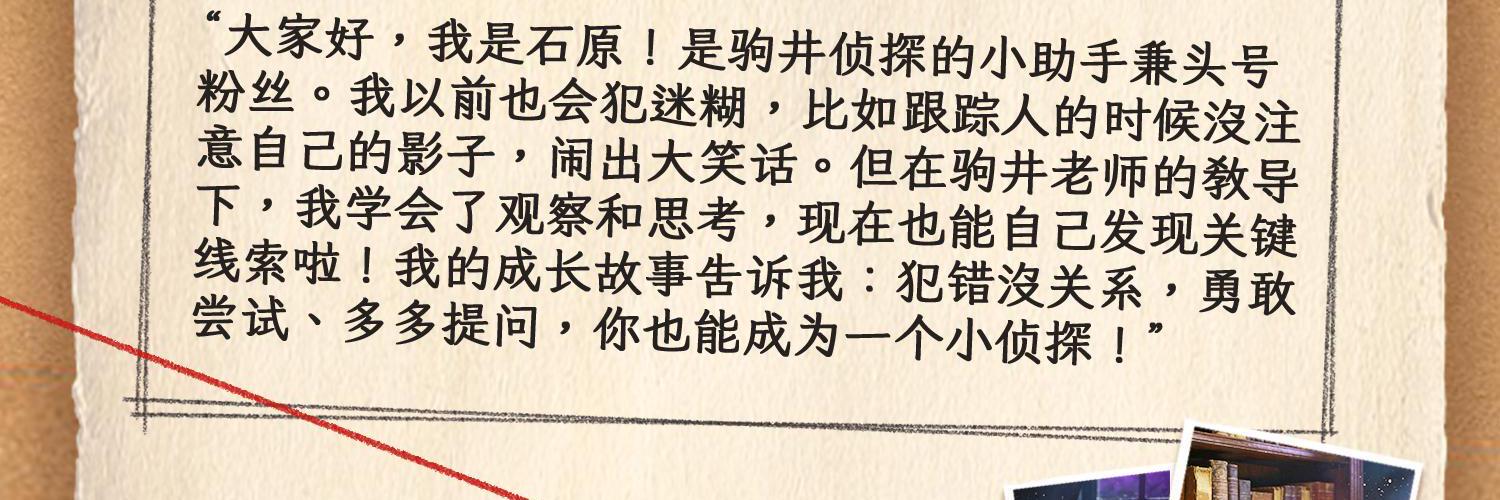 “大家好，我是石原！是驹井侦探的小助手兼头号
粉丝。我以前也会犯迷糊，比如跟踪人的时候沒注
意自己的影子，闹出大笑话。但在驹井老师的教导
下，我学会了观察和思考，现在也能自己发现关键
线索啦！我的成长故事告诉我：犯错沒关系，勇敢
尝试、多多提问，你也能成为一个小侦探！”